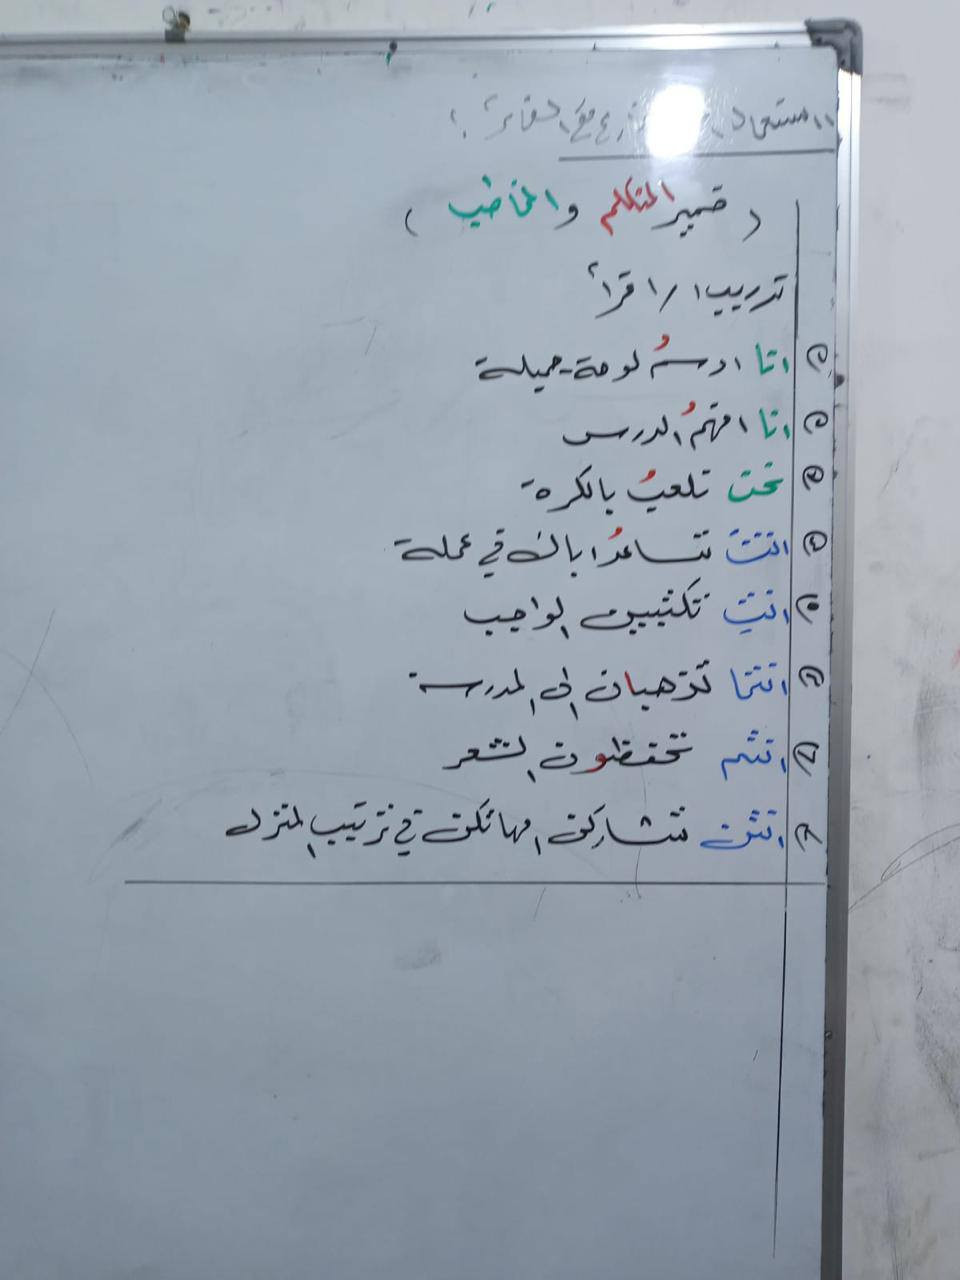 استعمال مع الضمائر :
( ضمير المتكلم والمخاطب )
تدريب ١ / اقرأ
١ انا ارسمُ لوحة جميلة
٢ انا افهمُ الدرس
٣ نحن نلعبُ بالكرة
٤ انتَ تساعدُ اباك في عملة
٥ انتِ تكتبين الواجب
٦ انتما تذهبان الى المدرسة
٧ انتم تحفظون الشعر
٨ انتن تشاركن امهاتكن في ترتيب المنزل